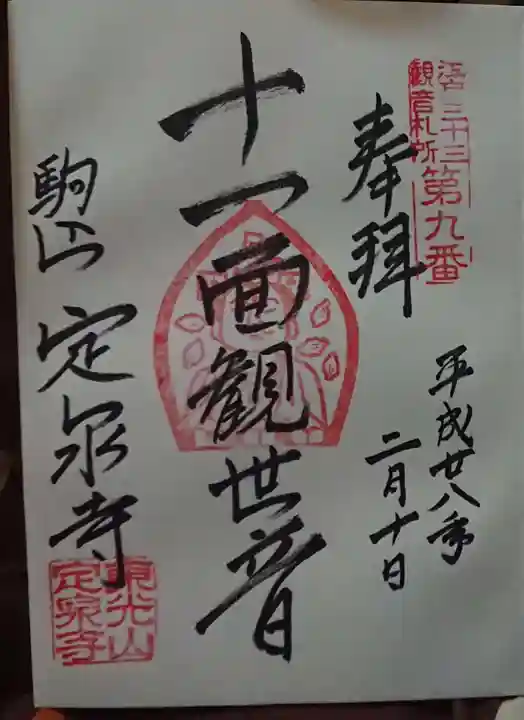 江戸三十三
観音札所
第九番
奉拝
平成廿八年
二月十日
十一面観世音
駒込
定泉寺
東光山
定泉寺